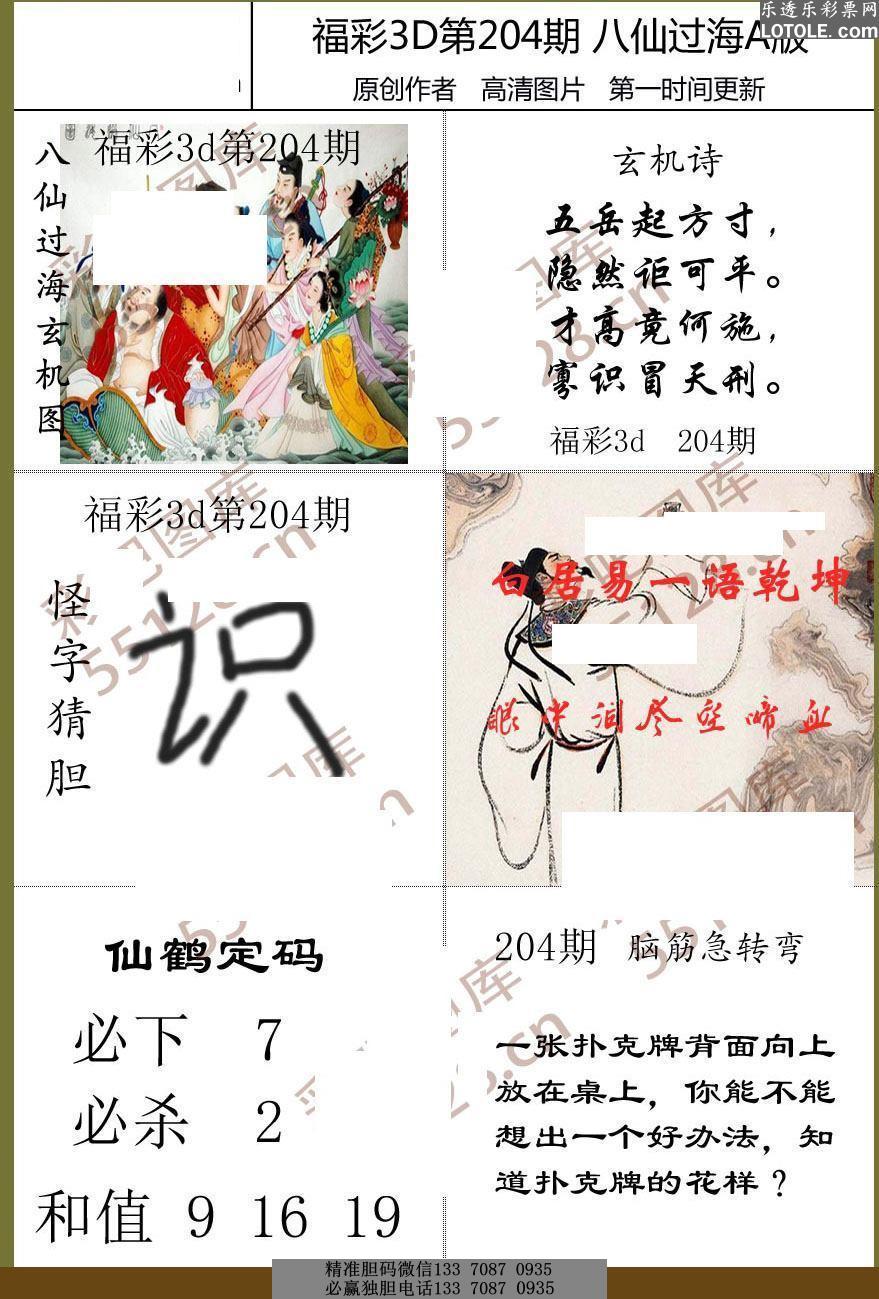 乐透乐彩票网
LOTOLE.COM
福彩3D第204期 八仙过海A版
原创作者 高清图片 第一时间更新
福彩3d第204期
八仙过海玄机图
玄机诗
五岳起方寸，
隐然讵可平。
才高竟何施，
寡识冒天刑。
福彩3d 204期
福彩3d第204期
怪字猜胆
识
白居易一语乾坤
眼中泪尽空啼血
仙鹤定码
必下 7
必杀 2
和值 9 16 19
204期 脑筋急转弯
一张扑克牌背面向上
放在桌上，你能不能
想出一个好办法，知
道扑克牌的花样？
精准胆码微信133 7087 0935
必赢独胆电话133 7087 0935